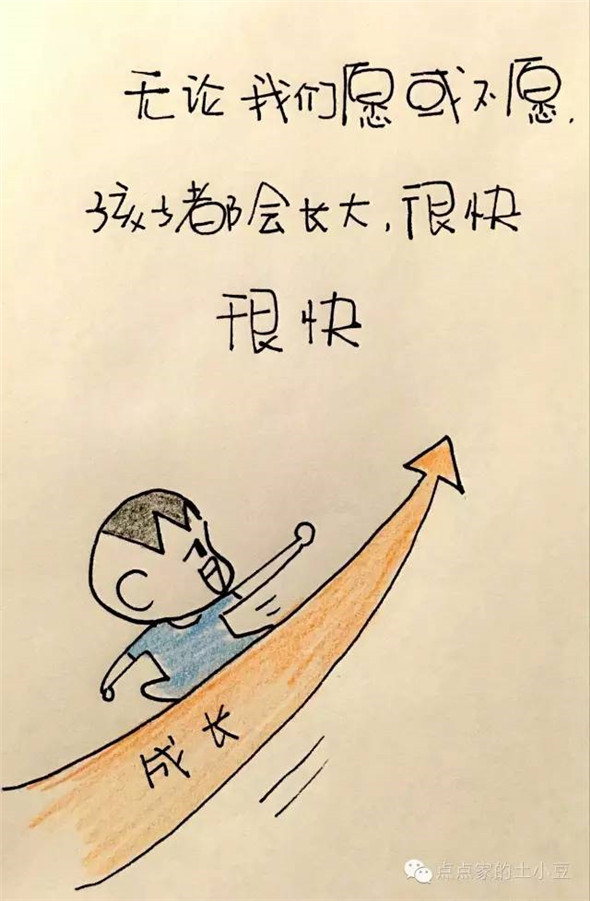 无论我们愿或不愿，
孩子都会长大，很快
很快
成长
点点家的土小豆